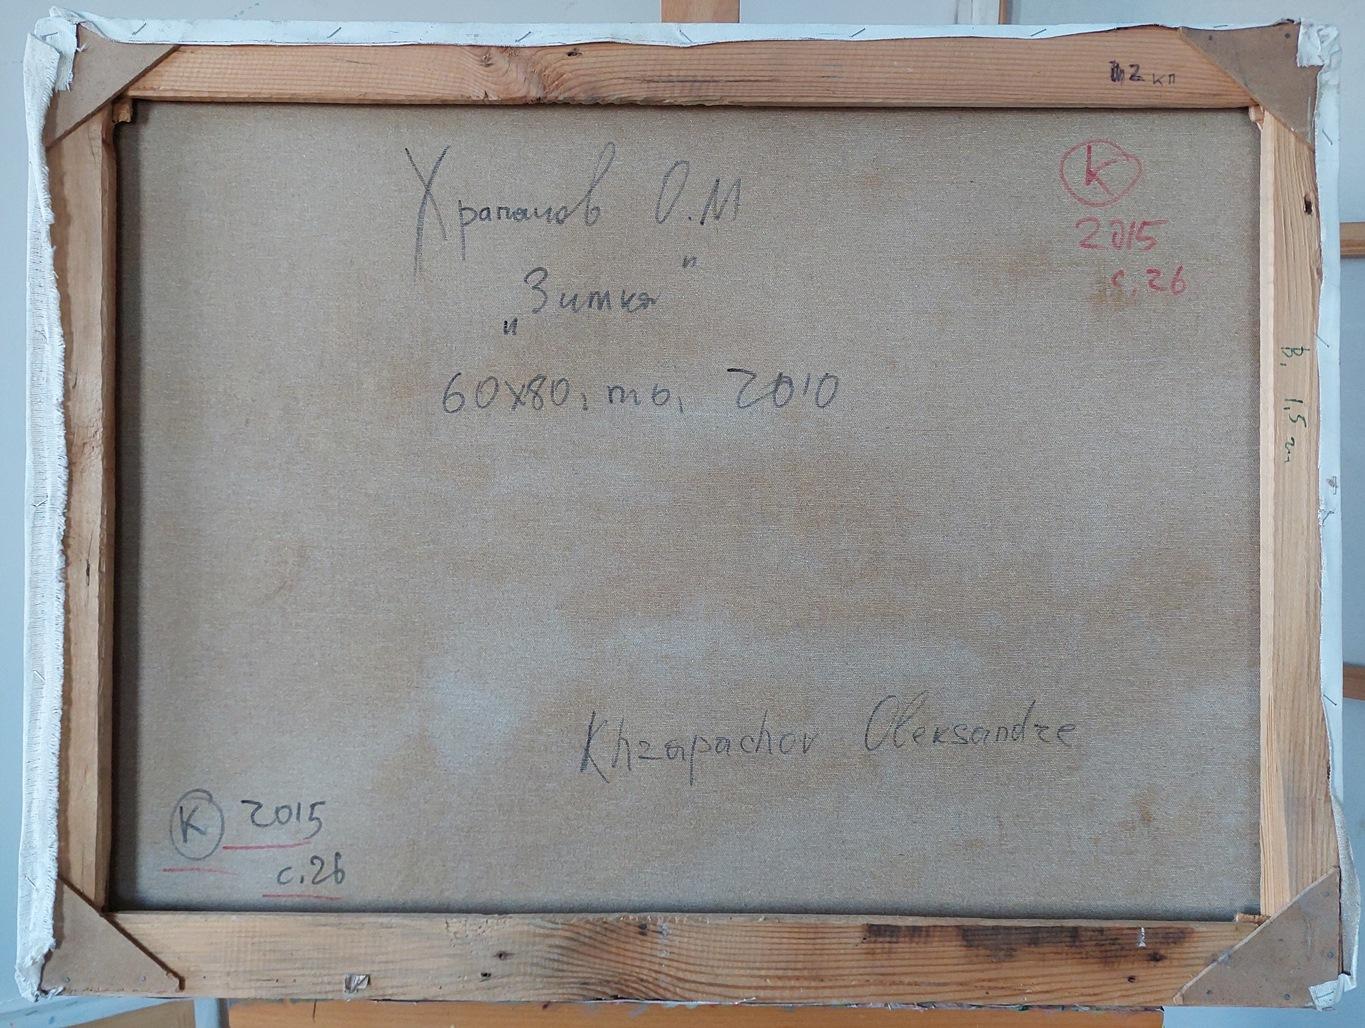 2 кп
Храпачов О.М
"Зиткя"
60х80, то, 2010
К
2015
с. 26
В, 1,5 м
Khrapachov Oleksandre
К 2015
с. 26